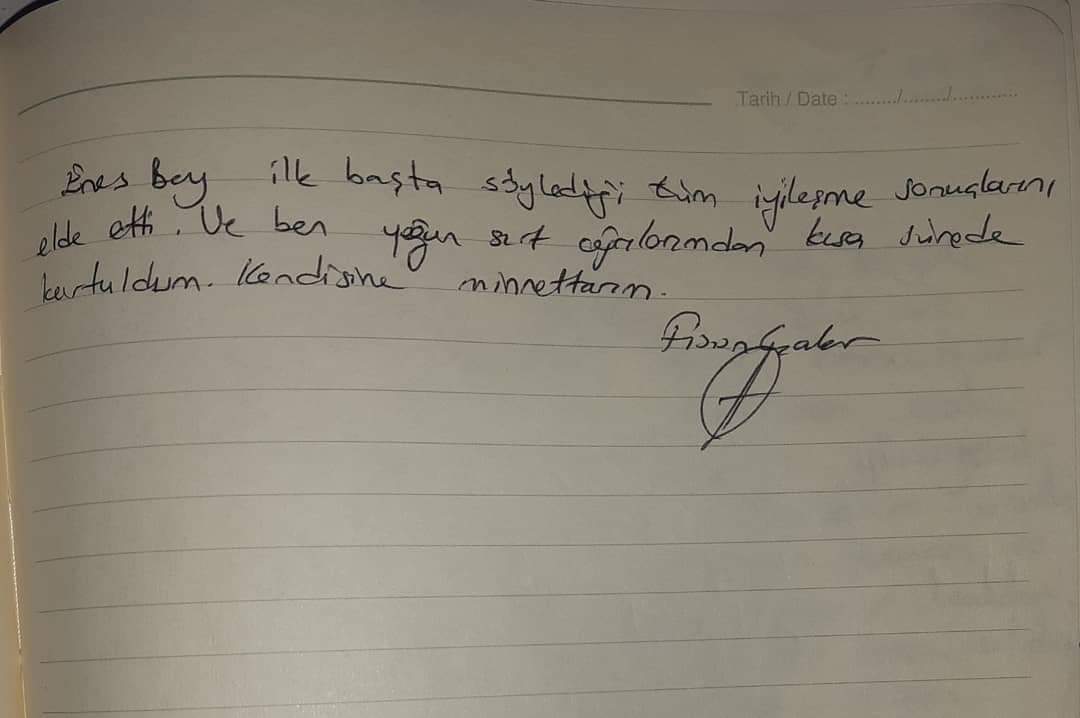 Tarih / Date : ......../......../............
Enes Bey ilk başta söylediği tüm iyileşme sonuçlarını
elde etti. Ve ben yoğun sırt ağrılarımdan kısa sürede
kurtuldum. Kendisine minnettarım.